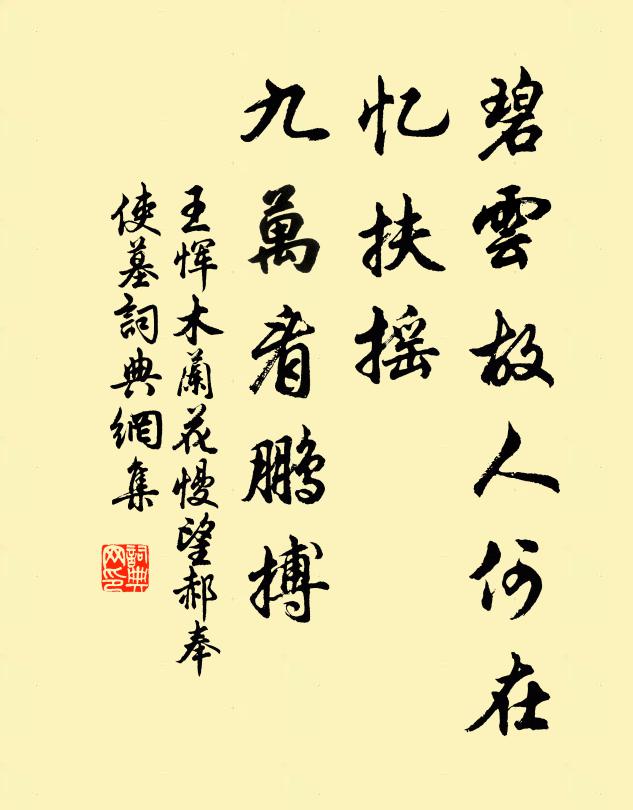 碧雲故人何在
忆扶摇
九萬看鵬搏
王恽木蘭花慢望郝奉
使墓詞典網集
詞典
网印